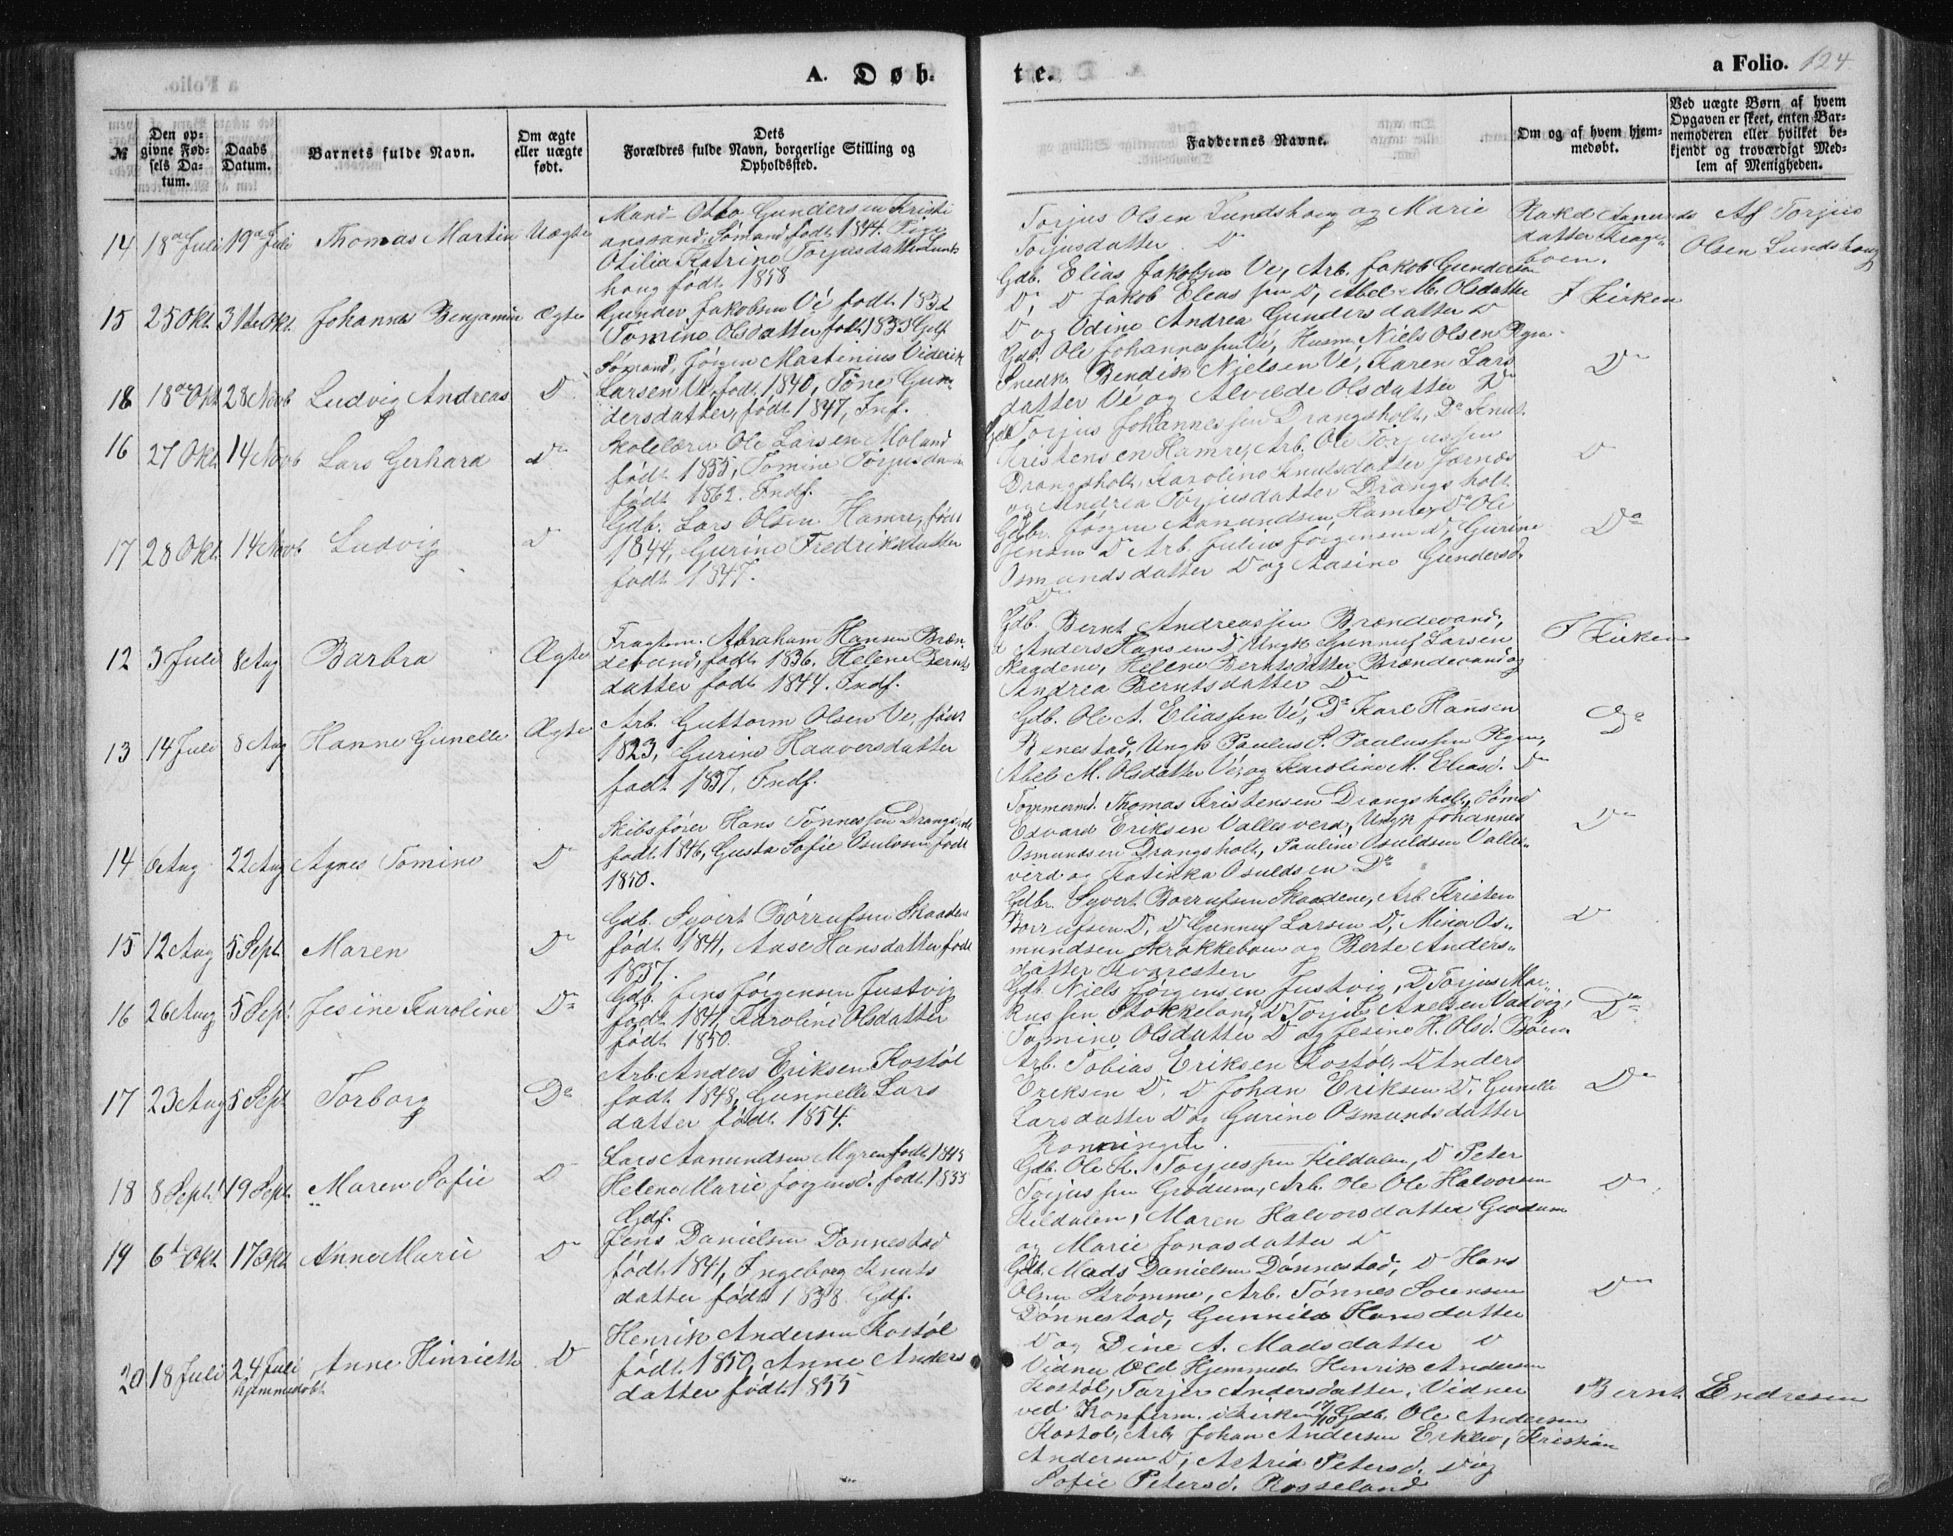 A. Døb-
te.
a Folio. 124.
№
Den opgivne Fødsels Datum.
Daabs Datum.
Barnets fulde Navn.
Om ægte eller uægte født.
Dets Forældres fulde Navn, borgerlige Stilling og Opholdssted.
Faddernes Navne.
Om og af hvem hjemmedøbt.
Ved uægte Børn af hvem Opgaven er skeet, enten Barnemoderen eller hvilket bekjendt og troværdigt Medlem af Menigheden.
14 18de Juli 19de Juli Thomas Martin Uægte
Otto Gundersen Kristi
anssand, Sømand, født 1844.
Otilia Katrine Torjusdatter Lunds
houg født 1858
Torjus Olsen Lundshoug og Marie
Torjusdatter D
datter
Af Torjus
Olsen Lundshoug
15 25 Okt. 31de Okt. Johannes Benjamin Ægte
Gunder Jakobsen Vé født 1832
Tomine Olsdatter født 1835 Gdf.
Gdb. Elias Jakobsen Ve, Arb. Jakob Gundersen
D, D Jakob Eleassen D, Abel M. Olsdatter
D og Odine Andrea Gundersdatter D
I Kirken
18 18de Okt. 28 Novb Ludvig Andreas D
Sømand, Jørgen Martinius Viderik
Larsen Ve, født 1840, Tone Gun
dersdatter, født 1847, Inf.
Gdb. Ole Johannessen Vé, Husm. Niels Olsen
Snedk. Bendik Nielsen Vé, Karen Lars
datter Vé og Alvilde Olsdatter D
D
16 27 Okt. 14 Novb Lars Gerhard D
Skolelærer Ole Larsen Moland
født 1855, Tomine Torjusdatter
født 1862. Indf.
Torjus Johannessen Drangsholt, D Knut
Kristensen Hamre, Arb. Ole Torjussen
Drangsholt, Karoline Knutsdatter
og Andrea Torjusdatter Drangsholt
D
17 28 Okt. 14 Novb Ludvig D
Gdb. Lars Olsen Hamre, født
1844, Gurine Fredriksdatter
født 1847.
Gdbr. Jørgen Aamundsen Hamre, D Ole
Jensen D Arb. Julius Jørgensen D, Gurine
Osmundsdatter D og Aasine Gundersd.
D
D
12 3 Juli 8 Aug Barbra Ægte
Fragtem. Abraham Hansen Bræn
devand, født 1836. Helene Bernts
datter født 1844. Indf.
Gdb. Bernt Andreassen Brændevand,
Anders Hansen D, Ungk Gunnuf Larsen
Skaadene, Helene Berntsdatter Brændevand og
Andrea Berntsdatter D
I Kirken
13 14 Juli 8 Aug Hanne Gunelle Ægte
Arb. Guttorm Olsen Ve, født
1823, Gurine Haaversdatter
født 1837, Indf.
Gdb. Ole A. Eliassen Vé, D Karl Hansen
Benestad, Ungk Paulus P. Paulussen
Abel M. Olsdatter Vé, og Karoline M. Eliasd. D
D
14 6 Aug 22 Aug Agnes Tomine D
Skibsfører Hans Tønnessen Drangsholt
født 1846, Gusta Sofie Osuldsen født
1850.
Tømmermd. Thomas Kristensen Drangsholt, Sømd
Edvard Eriksen Vallesverd, Ungk Johannes
Osmundsen Drangsholt, Pauline Osuldsen Valles
verd og Katinka Osuldsen D
D
15 12 Aug 5 Sept. Maren D
Gdb. Syvert Børrufsen Skaadene
født 1841, Aase Hansdatter født
1837.
Gdbr. Syvert Børrufsen Skaadene, Arb Kristen
Børrufsen D, D Gunnuf Larsen D, Mina Os-
mundsen Skrøkkeboen og Berte Anders-
datter
D
16 26 Aug 5 Sept. Jesine Karoline D
Gdb. Jens Jørgensen Justvig
født 1841, Karoline Olsdatter
født 1850.
Gdb. Niels Jørgensen Justvig, D Torjus Mar-
kussen Stokkeland, D Torjus Axelsen
Tomine Olsdatter D og Jesine H. Olsd. Bøen
D
17 23 Aug 5 Sept Torborg D
Arb. Anders Eriksen Kostøl
født 1848, Gunnelle Lars
datter født 1854.
Arb. Tobias Eriksen Kostøl, D Anders
Eriksen D, D Johan Eriksen D, Gunelle
Larsdatter D og Gurine Osmundsdatter
D
18 8 Sept. 19 Sept. Maren Sofie D
Lars Aanundsen Myren født 1848
Helene Marie Jørgensd. født 1855
Gdf.
Gdb. Ole K. Torjussen Kildalen, D Peter
Torjussen Grødum, Arb. Ole Halvorsen
Kildalen, Maren Halvorsdatter Grødum
og Marie Jonasdatter D
D
19 6te Okt. 17 Okt. Anne Marie D
Jens Danielsen Dønnestad
født 1841, Ingeborg Knuts
datter født 1838. Gdf.
Gdb. Mads Danielsen Dønnestad, D Hans
Olsen Strømme, Arb. Tønnes Sørensen
Dønnestad, Gunnild Hansdatter
D og Dine A. Madsdatter D
D
20 18 Juli 24 Juli Anne Hinriette D
hjemmedøbt
Henrik Andersen Kostøl
født 1850, Anne Anders
datter født 1855
Vidner ved Hjemmed. Henrik Andersen
Kostøl, Tarjer Andersdatter, Vidner
ved Konferm. i Kirken 17/10 Gdb. Ole Andersen
Kostøl, Arb. Johan Andersen Erklev, Kristian
Andersen D, Astrid Petersd. D og
Sofie Petersd. Rosseland
Bernt Endresen